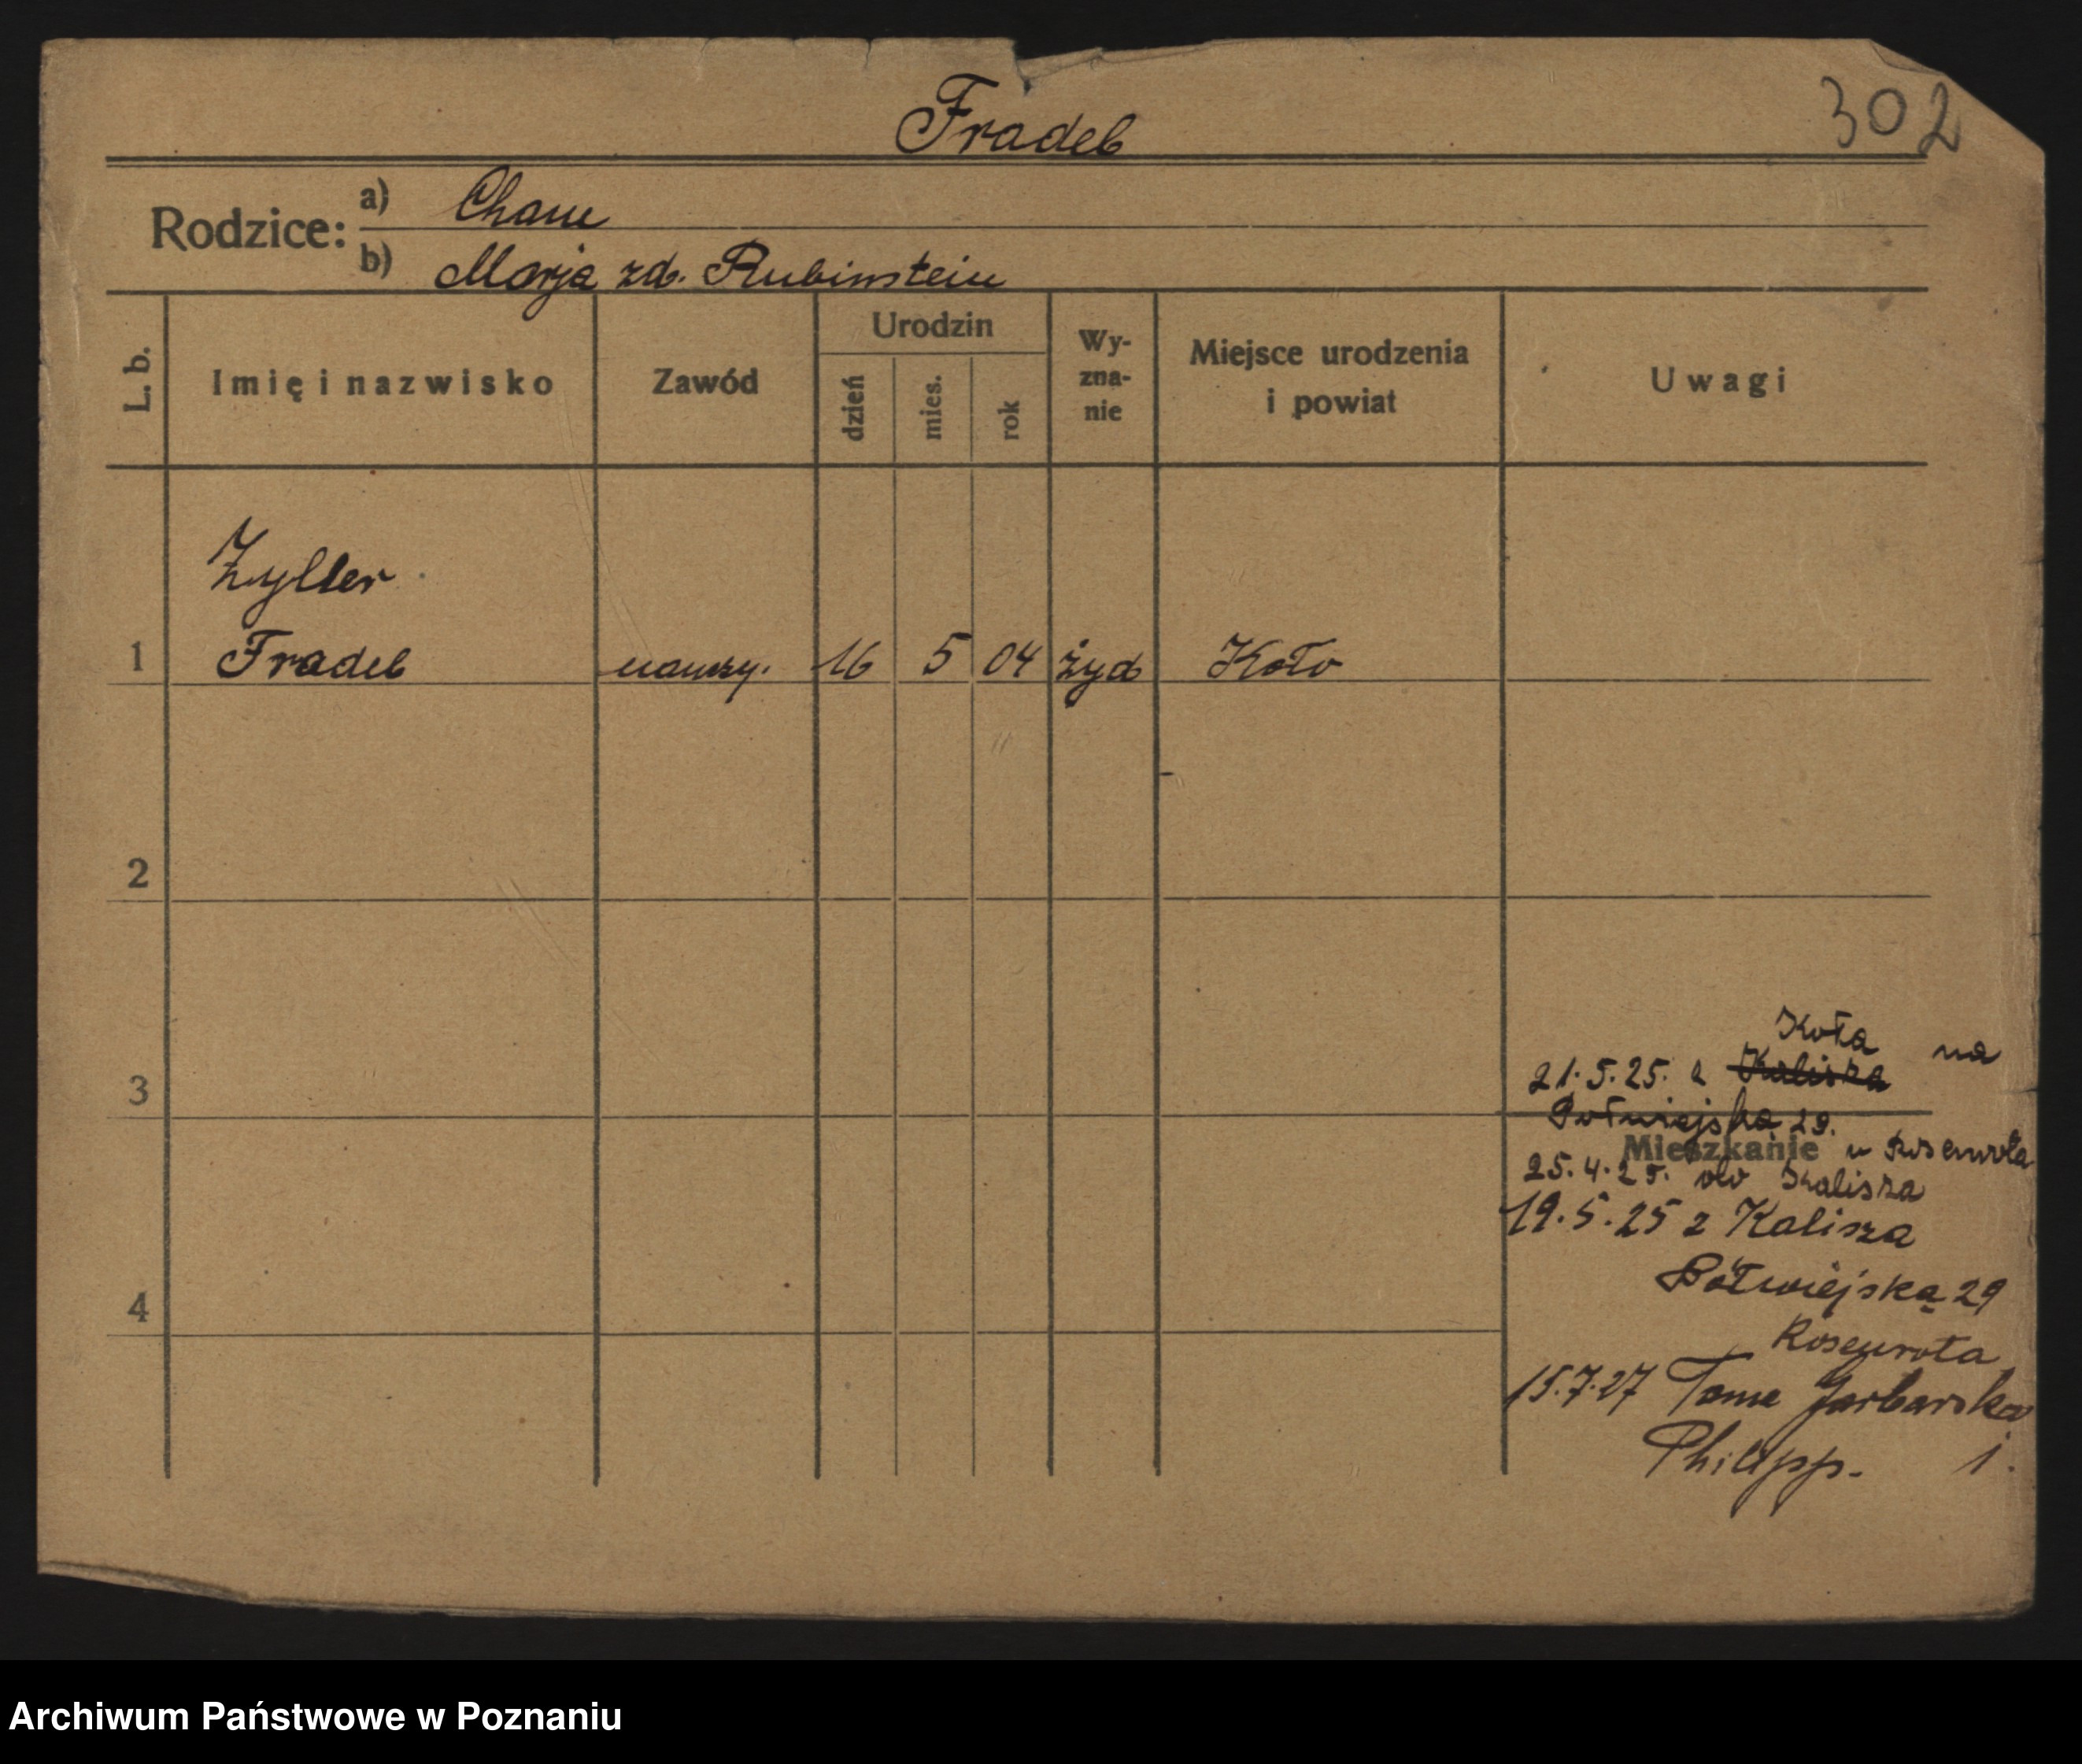 Fradel
302
Rodzice: a) Chane
b) Marja zd. Rubinstein
L. b.
Imię i nazwisko
Zawód
Urodzin
dzień
mies.
rok
Wy-
zna-
nie
Miejsce urodzenia
i powiat
Uwagi
Zyller
1 Fradel nauczy. 16 5 04 żyd Koło
2
3
4
Koła na
21.5.25. z Kalisza
Półwiejska 29.
Mieszkanie
25.4.25. do Kalisza
19.5.25 z Kalisza
Półwiejska 29
15.7.27 Tama Garbarska
Philipp. 1.
Archiwum Państwowe w Poznaniu